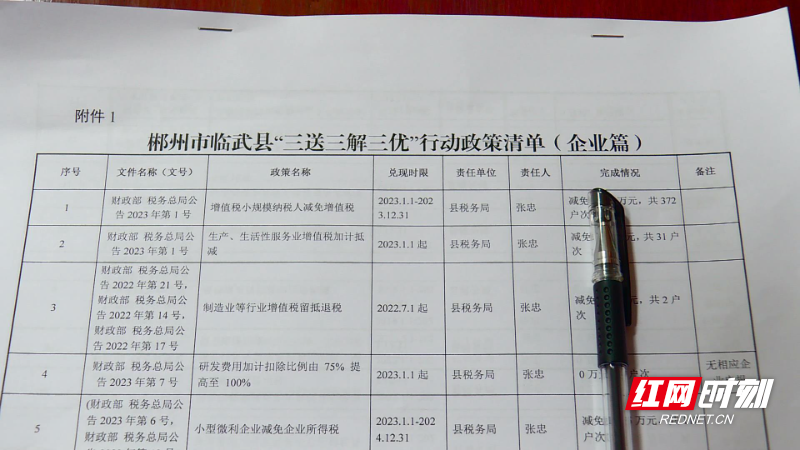 附件 1
郴州市临武县“三送三解三优”行动政策清单（企业篇）
序号 文件名称（文号） 政策名称 兑现时限 责任单位 责任人 完成情况 备注
1 财政部 税务总局公告 2023 年第 1 号 增值税小规模纳税人减免增值税 2023.1.1-2023.12.31 县税务局 张忠 减免 万元，共 372 户次
2 财政部 税务总局公告 2023 年第 1 号 生产、生活性服务业增值税加计抵减 2023.1.1 起 县税务局 张忠 减免 元，共 31 户次
3 财政部 税务总局公告 2022 年第 21 号，财政部 税务总局公告 2022 年第 14 号，财政部 税务总局公告 2022 年第 17 号 制造业等行业增值税留抵退税 2022.7.1 起 县税务局 张忠 减免 元，共 2 户次
4 财政部 税务总局公告 2023 年第 7 号 研发费用加计扣除比例由 75% 提高至 100% 2023.1.1 起 县税务局 张忠 0 万 户次 无相应企
5 (财政部 税务总局公告 2023 年第 6 号，财政部 税务总局公 小型微利企业减免企业所得税 2023.1.1-2024.12.31 县税务局 张忠 减免 万元，户次
红网时刻
REDNET.CN